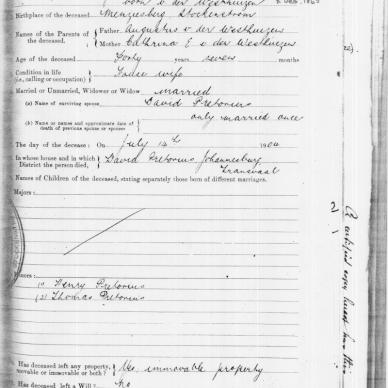 born v der Westhuizen
Birthplace of the deceased Stockenstrom
Names of the Parents of the deceased. Father Augustus v der Westhuizen
Mother Cathrina E v der Westhuizen
Age of the deceased Forty years seven months
Condition in life (i.e., calling or occupation) House wife
Married or Unmarried, Widower or Widow married
(a) Name of surviving spouse David Pretorius
(b) Name or names and approximate date of death of previous spouse or spouses only married once
The day of the decease: On July 14th 1904
In whose house and in which District the person died, David Pretorius Johannesburg Transvaal
Names of Children of the deceased, stating separately those born of different marriages.
Majors:
Minors:
(1) Henry Pretorius
(2) Thomas Pretorius
Has deceased left any property, movable or immovable or both? Yes. immovable property
Has deceased left a Will? No
A certified copy